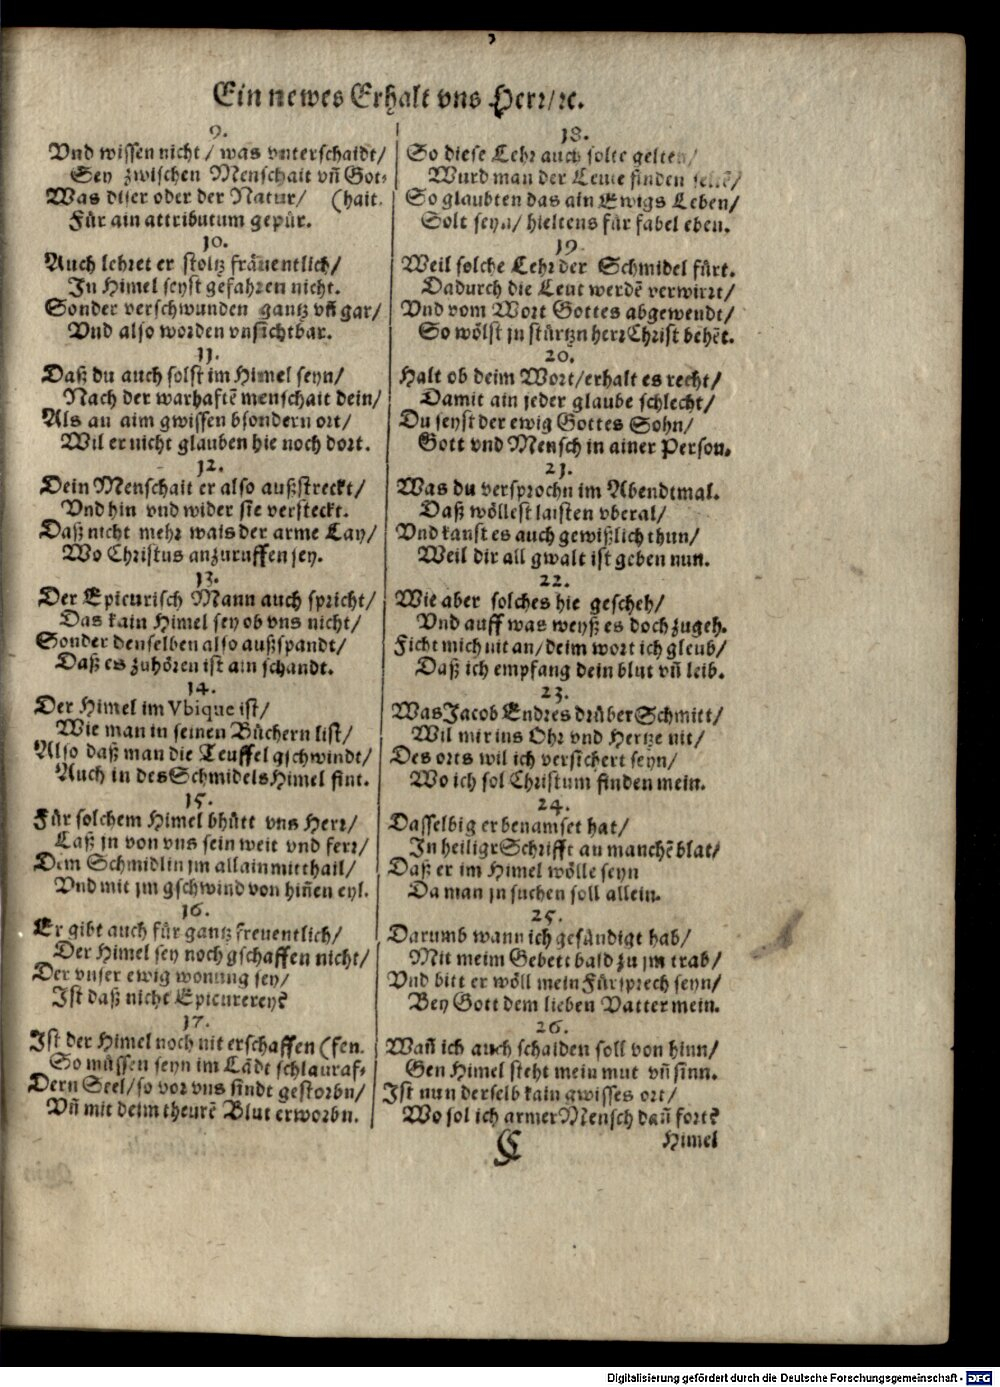 Ein newes Erhalt vns Herr/ꝛc.
9.
Vnd wissen nicht/ was vnterschaidt/
Sey zwischen Menschait vn̄ Got⸗
Was diser oder der Natur/ (hait.
Für ain attributum gepür.
10.
Auch lehret er stoltz fräuentlich/
In Himel seyst gefahren nicht.
Sonder verschwunden gantz vn̄ gar/
Vnd also worden vnsichtbar.
11.
Daß du auch solst im Himel seyn/
Nach der warhaftē menschait dein/
Als an aim gwissen bsondern ort/
Wil er nicht glauben hie noch dort.
12.
Dein Menschait er also außstreckt/
Vnd hin vnd wider sie versteckt.
Daß nicht mehr wais der arme Lay/
Wo Christus anzuruffen sey.
13.
Der Epicurisch Mann auch spricht/
Das kain Himel sey ob vns nicht/
Sonder denselben also außspandt/
Daß es zuhören ist ain schandt.
14.
Der Himel im Vbique ist/
Wie man in seinen Büchern list/
Also daß man die Teuffel gschwindt/
Auch in des Schmidels Himel fint.
15.
Für solchem Himel bhütt vns Herr/
Laß jn von vns sein weit vnd ferr/
Dem Schmidlin jm allain mitthail/
Vnd mit jm gschwind von hiñen eyl.
16.
Er gibt auch für gantz freuentlich/
Der Himel sey noch gschaffen nicht/
Der vnser ewig wonung sey/
Ist daß nicht Epicurerey?
17.
Ist der Himel noch nit erschaffen (fen.
So müssen seyn im Lādt schlauraf⸗
Dern Seel/ so vor vns sindt gestorbn/
Vn̄ mit deim theurē Blut erworbn.
18.
So diese Lehr auch solte gelten/
Wurd man der Leute finden
So glaubten das ain Ewigs Leben/
Solt seyn/ hieltens für fabel eben.
19.
Weil solche Lehr der Schmidel fürt.
Dadurch die Leut werdē verwirrt/
Vnd vom Wort Gottes abgewendt/
So wölst jn stürtzn herr Christ behēt.
20.
Halt ob deim Wort/ erhalt es recht/
Damit ain jeder glaube schlecht/
Du seyst der ewig Gottes Sohn/
Gott vnd Mensch in ainer Person.
21.
Was du versprochn im Abendtmal.
Daß wöllest laisten vberal/
Vnd kanst es auch gewißlich thun/
Weil dir all gwalt ist geben nun.
22.
Wie aber solches hie gescheh/
Vnd auff was weyß es doch zugeh.
Ficht mich nit an/ deim wort ich gleub/
Daß ich empfang dein blut vn̄ leib.
23.
Was Jacob Endres drüber Schmitt/
Wil mir ins Ohr vnd Hertze nit/
Des orts wil ich versichert seyn/
Wo ich sol Christum finden mein.
24.
Dasselbig er benamset hat/
In heiligr Schrifft an manchē blat/
Daß er im Himel wölle seyn
Da man jn suchen soll allein.
25.
Darumb wann ich gesündigt hab/
Mit meim Gebett bald zu jm trab/
Vnd bitt er wöll mein Fürsprech seyn/
Bey Gott dem lieben Vatter mein.
26.
Wañ ich auch schaiden soll von hinn/
Gen Himel steht mein mut vn̄ sinn.
Ist nun derselb kain gwisses ort/
Wo sol ich armer Mensch dañ fort?
C Himel
Digitalisierung gefördert durch die Deutsche Forschungsgemeinschaft - DFG